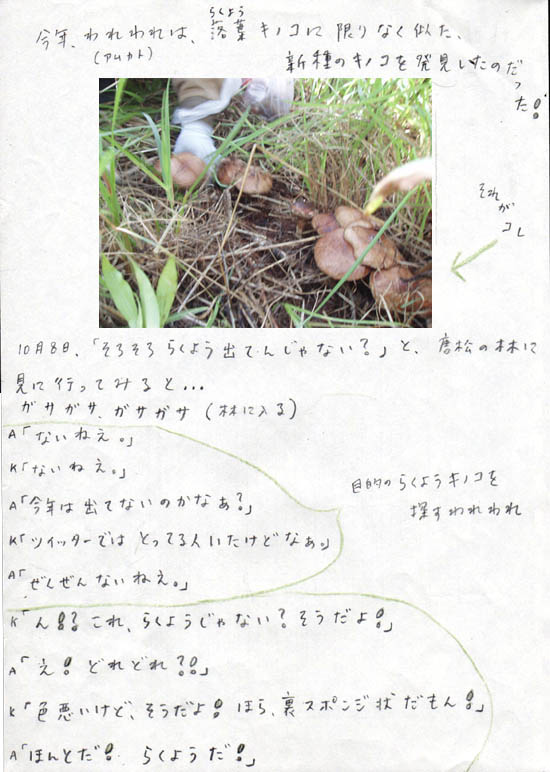 今年、われわれは、落葉キノコに限りなく似た、
らくよう
(アムカト)
新種のキノコを発見したのだった!
それがコレ
10月8日、「そろそろらくよう出てんじゃない?」と、唐松の林に
見に行ってみると…
ガサガサ、ガサガサ(林に入る)
A「ないねえ。」
K「ないねえ。」
A「今年は出てないのかなぁ?」
K「ツイッターではとってる人いたけどなぁ。」
A「ぜんぜんないねえ。」
目的のらくようキノコを
探すわれわれ
K「ん!?これ、らくようじゃない?そうだよ!」
A「え!どれどれ?!」
K「色悪いけど、そうだよ!ほら、裏スポンジ状だもん!」
A「ほんとだ!らくようだ!」